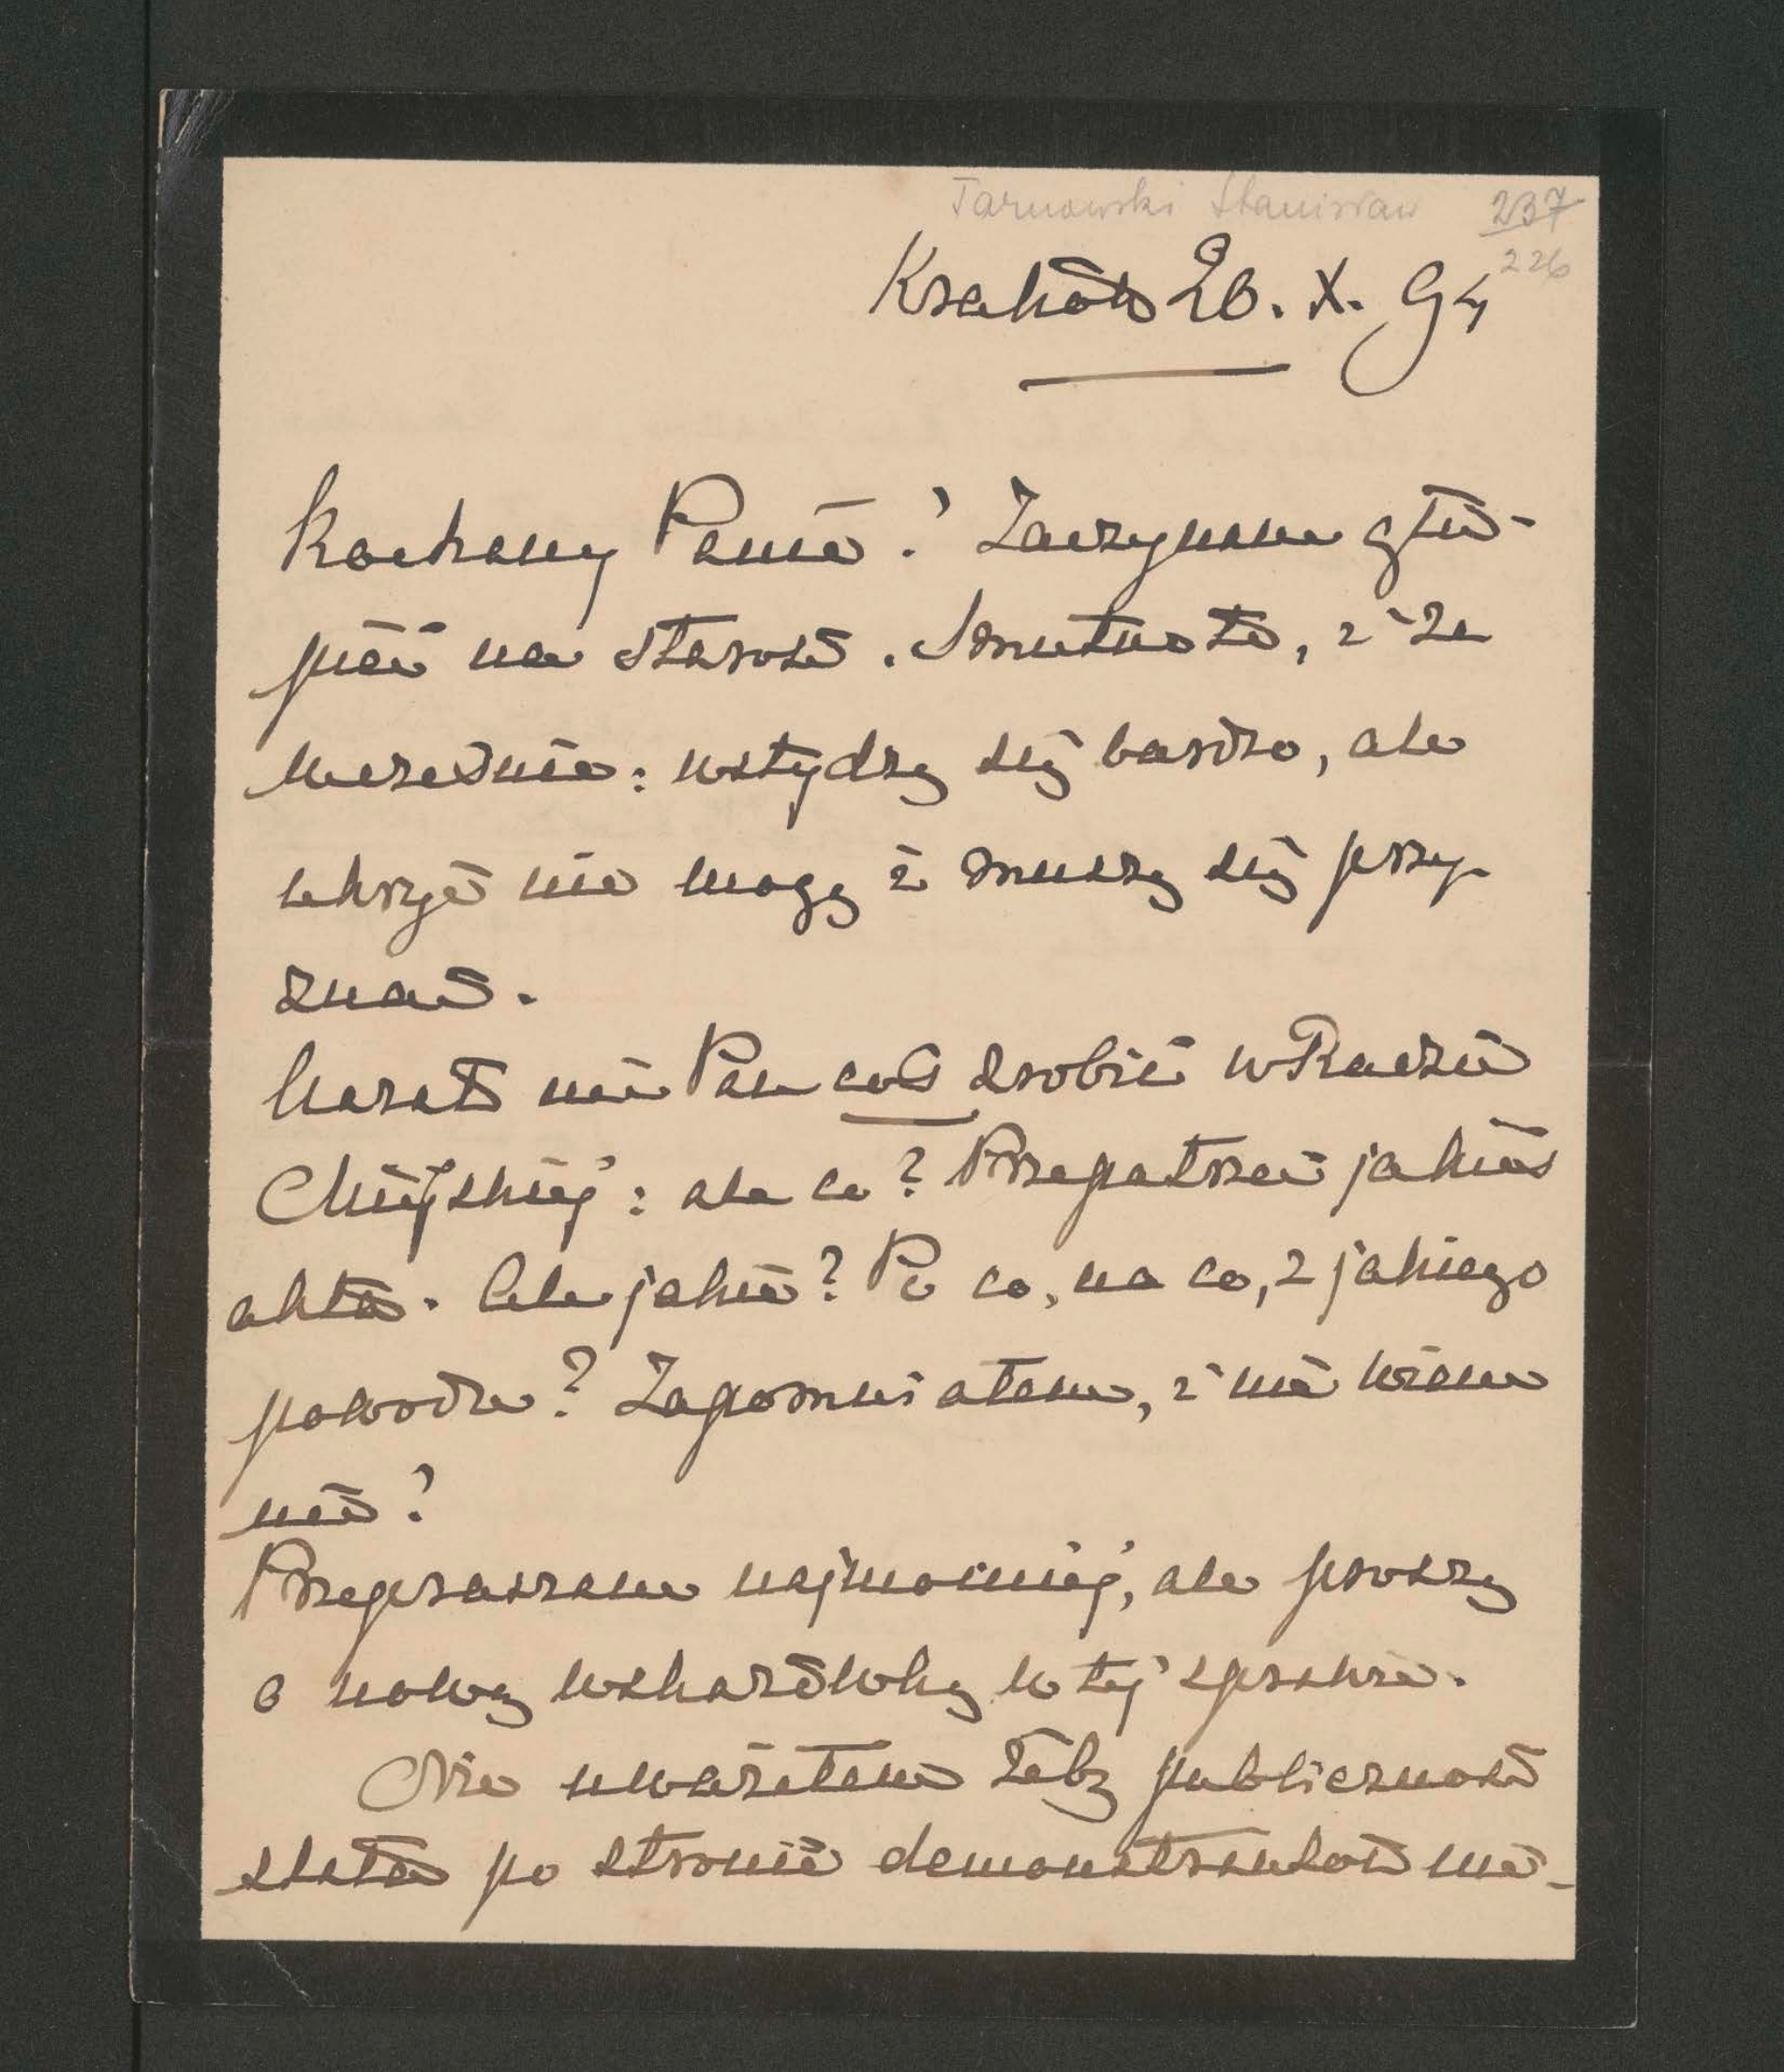 Tarnowski Stanisław 237
226
Kraków 26. X. 94
Kochany Panie! Zaczynam głu-
pieć na starość. Smutno to, i że
wcześnie: wstydzę się bardzo, ale
ukryć nie mogę i muszę się przy-
znać.
Kazał mi Pan coś zrobić w Radzie
Miejskiéj: ale co? Przepatrzeć jakieś
akta. Ale jakie? Po co, na co, z jakiego
powodu? Zapomniałem, i nie wiem
nic!
Przepraszam najmocniéj, ale proszę
o nową wskazówkę w téj sprawie.
Nie uważałem żeby publiczność
stała po stronie demonstrantów nie-